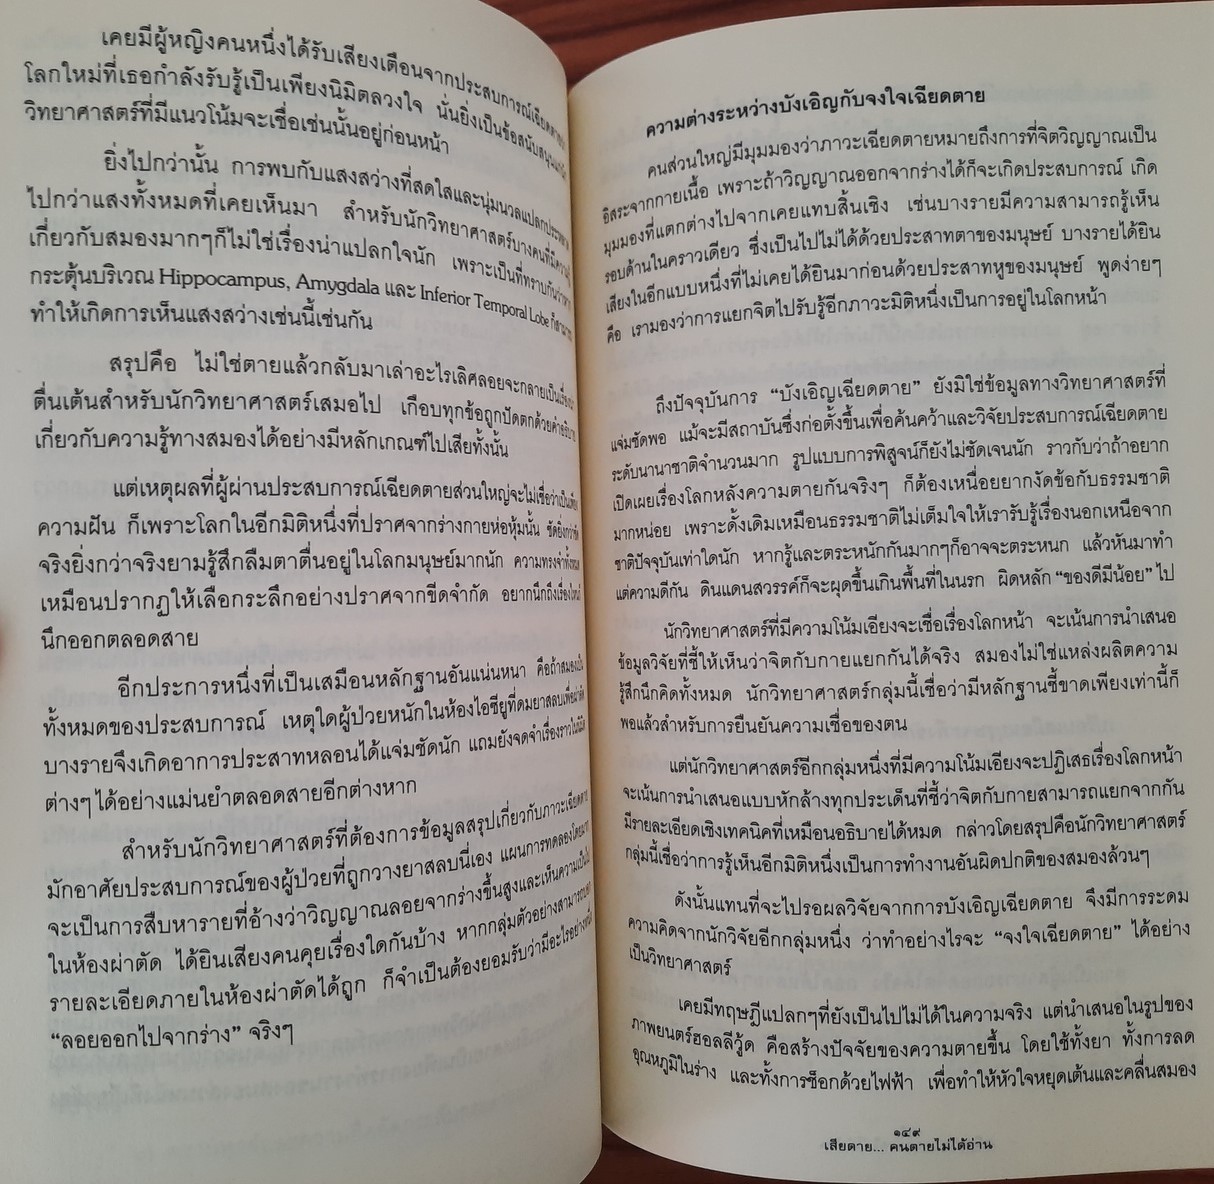 เคยมีผู้หญิงคนหนึ่งได้รับเสียงเตือนจากประสบการณ์เฉียดตายว่า
โลกใหม่ที่เธอกำลังรับรู้เป็นเพียงนิมิตลวงใจ นั่นยิ่งเป็นข้อสนับสนุน
วิทยาศาสตร์ที่มีแนวโน้มจะเชื่อเช่นนั้นอยู่ก่อนหน้า
ยิ่งไปกว่านั้น การพบกับแสงสว่างที่สดใสและนุ่มนวลแปลกประหลาด
ไปกว่าแสงทั้งหมดที่เคยเห็นมา สำหรับนักวิทยาศาสตร์บางคนที่มีความรู้
เกี่ยวกับสมองมากๆก็ไม่ใช่เรื่องน่าแปลกใจนัก เพราะเป็นที่ทราบกันว่าหาก
กระตุ้นบริเวณ Hippocampus, Amygdala และ Inferior Temporal Lobe ก็สามารถ
ทำให้เกิดการเห็นแสงสว่างเช่นนี้เช่นกัน
สรุปคือ ไม่ใช่ตายแล้วกลับมาเล่าอะไรเลิศลอยจะกลายเป็นเรื่อง
ตื่นเต้นสำหรับนักวิทยาศาสตร์เสมอไป เกือบทุกข้อถูกปัดตกด้วยคำอธิบาย
เกี่ยวกับความรู้ทางสมองได้อย่างมีหลักเกณฑ์ไปเสียทั้งนั้น
แต่เหตุผลที่ผู้ผ่านประสบการณ์เฉียดตายส่วนใหญ่จะไม่เชื่อว่าเป็นเพียง
ความฝัน ก็เพราะโลกในอีกมิติหนึ่งที่ปราศจากร่างกายห่อหุ้มนั้น ชัดยิ่งกว่าชัด
จริงยิ่งกว่าจริงยามรู้สึกลืมตาตื่นอยู่ในโลกมนุษย์มากนัก ความทรงจำทั้งหมด
เหมือนปรากฏให้เลือกระลึกอย่างปราศจากขีดจำกัด อยากนึกถึงเรื่องไหนก็
นึกออกตลอดสาย
อีกประการหนึ่งที่เป็นเสมือนหลักฐานอันแน่นหนา คือถ้าสมองเป็น
ทั้งหมดของประสบการณ์ เหตุใดผู้ป่วยหนักในห้องไอซียูที่ดมยาสลบเพื่อผ่าตัด
บางรายจึงเกิดอาการประสาทหลอนได้แจ่มชัดนัก แถมยังจดจำเรื่องราวในนิมิต
ต่างๆได้อย่างแม่นยำตลอดสายอีกต่างหาก
สำหรับนักวิทยาศาสตร์ที่ต้องการข้อมูลสรุปเกี่ยวกับภาวะเฉียดตาย
มักอาศัยประสบการณ์ของผู้ป่วยที่ถูกวางยาสลบนี่เอง แผนการทดลองโดยมาก
จะเป็นการสืบหารายที่อ้างว่าวิญญาณลอยจากร่างขึ้นสูงและเห็นความเป็นไป
ในห้องผ่าตัด ได้ยินเสียงคนคุยเรื่องใดกันบ้าง หากกลุ่มตัวอย่างสามารถบอก
รายละเอียดภายในห้องผ่าตัดได้ถูก ก็จำเป็นต้องยอมรับว่ามีอะไรอย่างหนึ่ง
“ลอยออกไปจากร่าง” จริงๆ
ความต่างระหว่างบังเอิญกับจงใจเฉียดตาย
คนส่วนใหญ่มีมุมมองว่าภาวะเฉียดตายหมายถึงการที่จิตวิญญาณเป็น
อิสระจากกายเนื้อ เพราะถ้าวิญญาณออกจากร่างได้ก็จะเกิดประสบการณ์ เกิด
มุมมองที่แตกต่างไปจากเคยแทบสิ้นเชิง เช่นบางรายมีความสามารถรู้เห็น
รอบด้านในคราวเดียว ซึ่งเป็นไปไม่ได้ด้วยประสาทตาของมนุษย์ บางรายได้ยิน
เสียงในอีกแบบหนึ่งที่ไม่เคยได้ยินมาก่อนด้วยประสาทหูของมนุษย์ พูดง่ายๆ
คือ เรามองว่าการแยกจิตไปรับรู้อีกภาวะมิติหนึ่งเป็นการอยู่ในโลกหน้า
ถึงปัจจุบันการ “บังเอิญเฉียดตาย” ยังมิใช่ข้อมูลทางวิทยาศาสตร์ที่
แจ่มชัดพอ แม้จะมีสถาบันซึ่งก่อตั้งขึ้นเพื่อค้นคว้าและวิจัยประสบการณ์เฉียดตาย
ระดับนานาชาติจำนวนมาก รูปแบบการพิสูจน์ก็ยังไม่ชัดเจนนัก ราวกับว่าถ้าอยาก
เปิดเผยเรื่องโลกหลังความตายกันจริงๆ ก็ต้องเหนื่อยยากงัดข้อกับธรรมชาติ
มากหน่อย เพราะดั้งเดิมเหมือนธรรมชาติไม่เต็มใจให้เรารับรู้เรื่องนอกเหนือจาก
ชาติปัจจุบันเท่าใดนัก หากรู้และตระหนักกันมากๆก็อาจจะตระหนก แล้วหันมาทำ
แต่ความดีกัน ดินแดนสวรรค์ก็จะผุดขึ้นเกินพื้นที่ในนรก ผิดหลัก “ของดีมีน้อย” ไป
นักวิทยาศาสตร์ที่มีความโน้มเอียงจะเชื่อเรื่องโลกหน้า จะเน้นการนำเสนอ
ข้อมูลวิจัยที่ชี้ให้เห็นว่าจิตกับกายแยกกันได้จริง สมองไม่ใช่แหล่งผลิตความ
รู้สึกนึกคิดทั้งหมด นักวิทยาศาสตร์กลุ่มนี้เชื่อว่ามีหลักฐานชี้ขาดเพียงเท่านี้ก็
พอแล้วสำหรับการยืนยันความเชื่อของตน
แต่นักวิทยาศาสตร์อีกกลุ่มหนึ่งที่มีความโน้มเอียงจะปฏิเสธเรื่องโลกหน้า
จะเน้นการนำเสนอแบบหักล้างทุกประเด็นที่ชี้ว่าจิตกับกายสามารถแยกจากกัน
มีรายละเอียดเชิงเทคนิคที่เหมือนอธิบายได้หมด กล่าวโดยสรุปคือนักวิทยาศาสตร์
กลุ่มนี้เชื่อว่าการรู้เห็นอีกมิติหนึ่งเป็นการทำงานอันผิดปกติของสมองล้วนๆ
ดังนั้นแทนที่จะไปรอผลวิจัยจากการบังเอิญเฉียดตาย จึงมีการระดม
ความคิดจากนักวิจัยอีกกลุ่มหนึ่ง ว่าทำอย่างไรจะ “จงใจเฉียดตาย” ได้อย่าง
เป็นวิทยาศาสตร์
เคยมีทฤษฎีแปลกๆที่ยังเป็นไปไม่ได้ในความจริง แต่นำเสนอในรูปของ
ภาพยนตร์ฮอลลีวู้ด คือสร้างปัจจัยของความตายขึ้น โดยใช้ทั้งยา ทั้งการลด
อุณหภูมิในร่าง และทั้งการช็อกด้วยไฟฟ้า เพื่อทำให้หัวใจหยุดเต้นและคลื่นสมอง
๑๔๙
เสียดาย... คนตายไม่ได้อ่าน